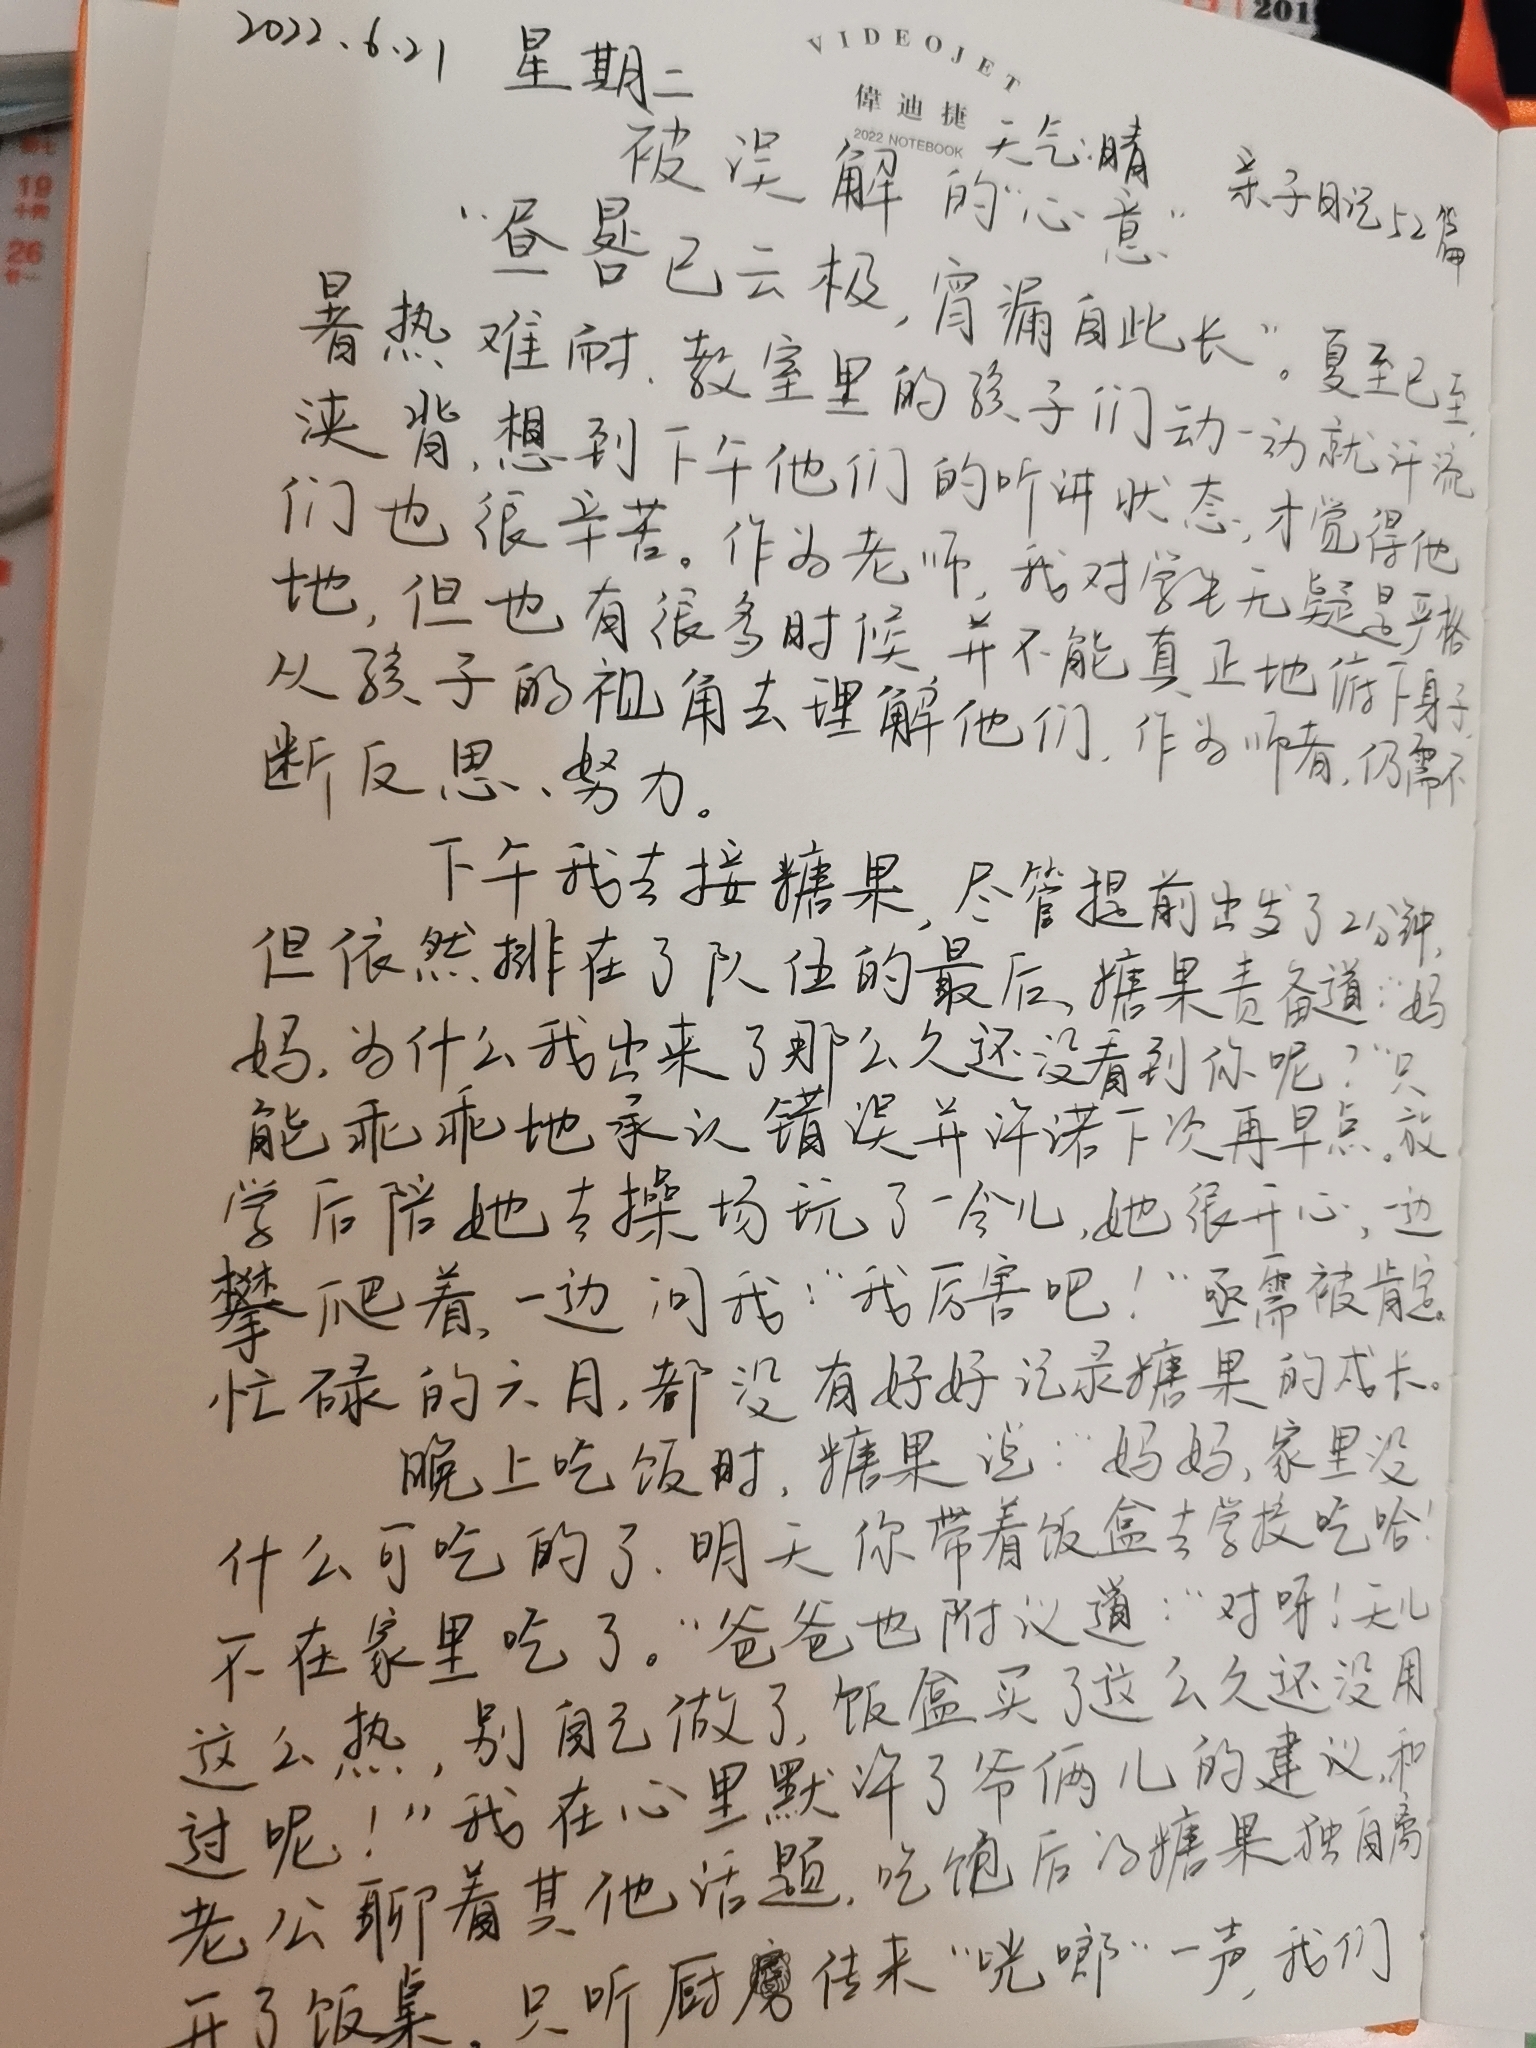 2022.6.21 星期二
VIDEOJET
偉迪捷
2022 NOTEBOOK
天气:晴
亲子日记52篇
被误解的“心意”
“昼晷已云极，宵漏自此长”。夏至已至，
暑热难耐，教室里的孩子们动一动就汗流
浃背，想到下午他们的听讲状态，才觉得他
们也很辛苦。作为老师，我对学生无疑是严格
地，但也有很多时候并不能真正地俯下身子，
从孩子的视角去理解他们，作为师者，仍需不
断反思、努力。
下午我去接糖果，尽管提前出发了2分钟，
但依然排在了队伍的最后，糖果责备道：“妈
妈，为什么我出来了那么久还没看到你呢？”只
能乖乖地承认错误并许诺下次再早点。放
学后陪她去操场玩了一会儿，她很开心，一边
攀爬着，一边问我：“我厉害吧！”亟需被肯定。
忙碌的六月，都没有好好记录糖果的成长。
晚上吃饭时，糖果说：“妈妈，家里没
什么可吃的了，明天你带着饭盒去学校吃哈！
不在家里吃了。”爸爸也附议道：“对呀！天儿
这么热，别自己做了，饭盒买了这么久还没用
过呢！”我在心里默许了爷俩儿的建议，和
老公聊着其他话题，吃饱后的糖果独自离
开了饭桌，只听厨房传来“咣啷”一声，我们
201
19
26